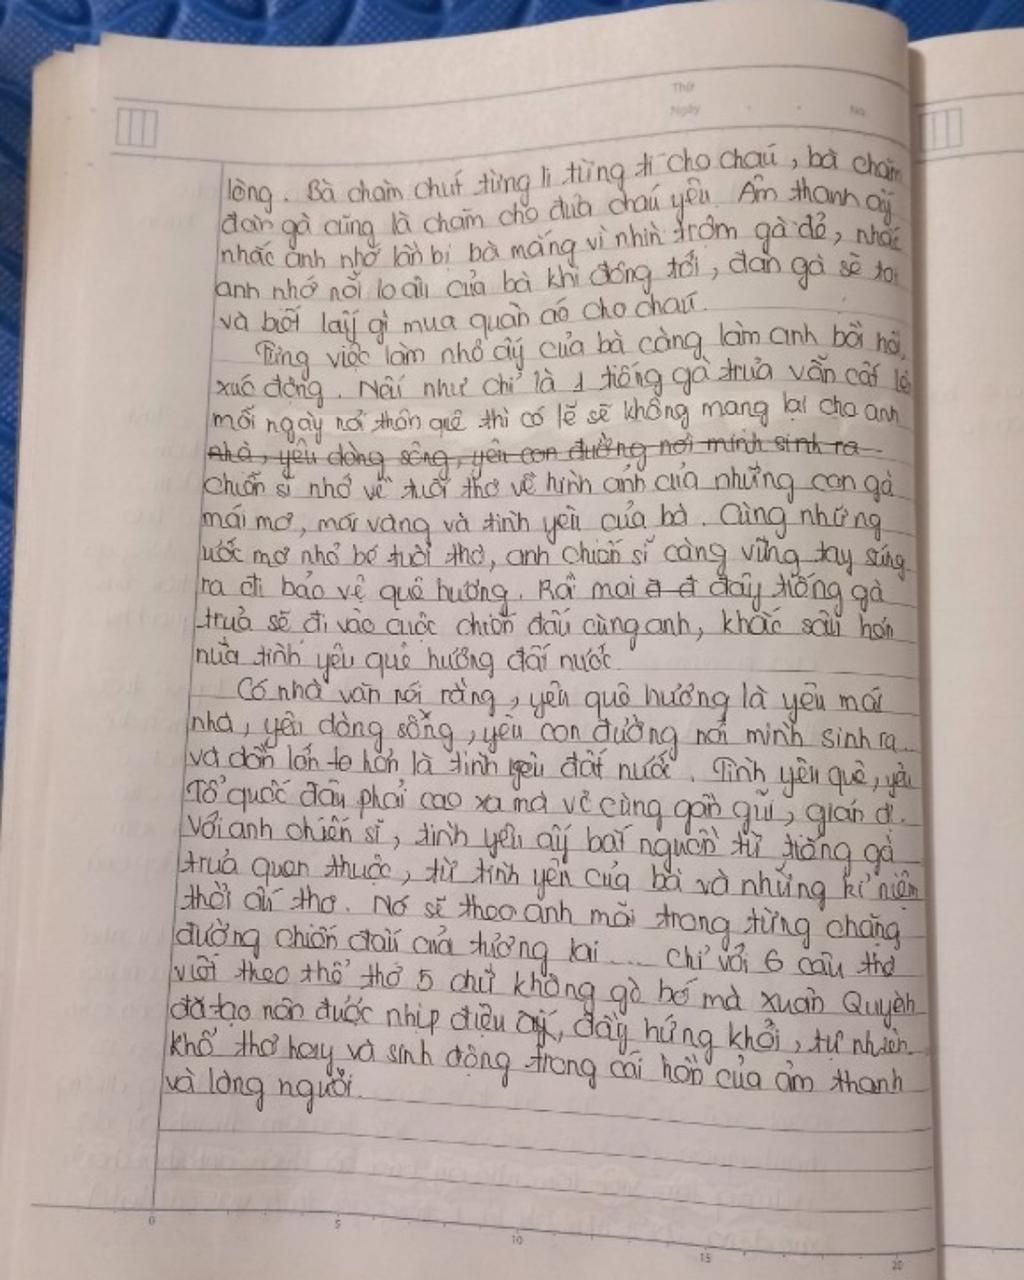 Thứ
Ngày No.
lòng. Bà chăm chút từng li từng tí cho cháu, bà chăm
đàn gà cũng là chăm cho đứa cháu yêu. Âm thanh ấy
nhắc anh nhớ lần bị bà mắng vì nhìn trộm gà đẻ, nhắc
anh nhớ nỗi lo âu của bà khi đông tới, đàn gà sẽ toi
và biết lấy gì mua quần áo cho cháu.
Từng việc làm nhỏ ấy của bà càng làm anh bồi hồi,
xúc động. Nếu như chỉ là 1 tiếng gà trưa vẫn cất lên
mỗi ngày nơi thôn quê thì có lẽ sẽ không mang lại cho anh
nhà, yêu dòng sông, yêu con đường nơi mình sinh ra
chiến sĩ nhớ về tuổi thơ về hình ảnh của những con gà
mái mơ, mái vàng và tình yêu của bà. Cùng những
ước mơ nhỏ bé tuổi thơ, anh chiến sĩ càng vững tay súng
ra đi bảo vệ quê hương. Rồi mai đây tiếng gà
trưa sẽ đi vào cuộc chiến đấu cùng anh, khắc sâu hơn
nữa tình yêu quê hương đất nước.
Có nhà văn nói rằng, yêu quê hương là yêu mái
nhà, yêu dòng sông, yêu con đường nơi mình sinh ra
và dần lớn to hơn là tình yêu đất nước. Tình yêu quê, yêu
Tổ quốc đâu phải cao xa mà vô cùng gần gũi, giản dị.
Với anh chiến sĩ, tình yêu ấy bắt nguồn từ tiếng gà
trưa quen thuộc, từ tình yêu của bà và những kỉ niệm
thời ấu thơ. Nó sẽ theo anh mãi trong từng chặng
đường chiến đấu của tương lai .... Chỉ với 6 câu thơ
viết theo thể thơ 5 chữ không gò bó mà Xuân Quỳnh
đã tạo nên được nhịp điệu ấy, đầy hứng khởi, tự nhiên
khổ thơ hay và sinh động trong cái hồn của âm thanh
và lòng người.
0 5 10 15 20